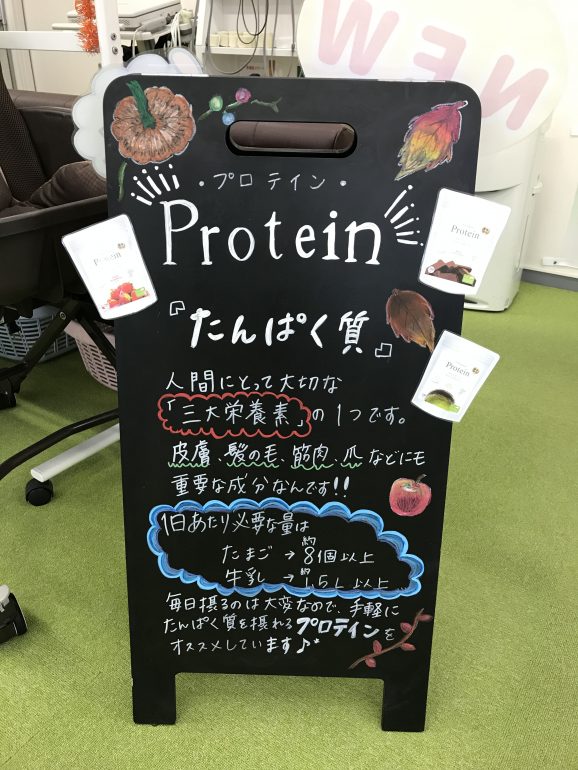 NEW
・プロテイン・
Protein
『たんぱく質』
人間にとって大切な
「三大栄養素」の1つです。
皮膚、髪の毛、筋肉、爪などにも
重要な成分なんです!!
1日あたり必要な量は
たまご→約8個以上
牛乳→約1.5L以上
毎日摂るのは大変なので、手軽に
たんぱく質を摂れるプロテインを
オススメしています♪
Protein
Protein
Protein